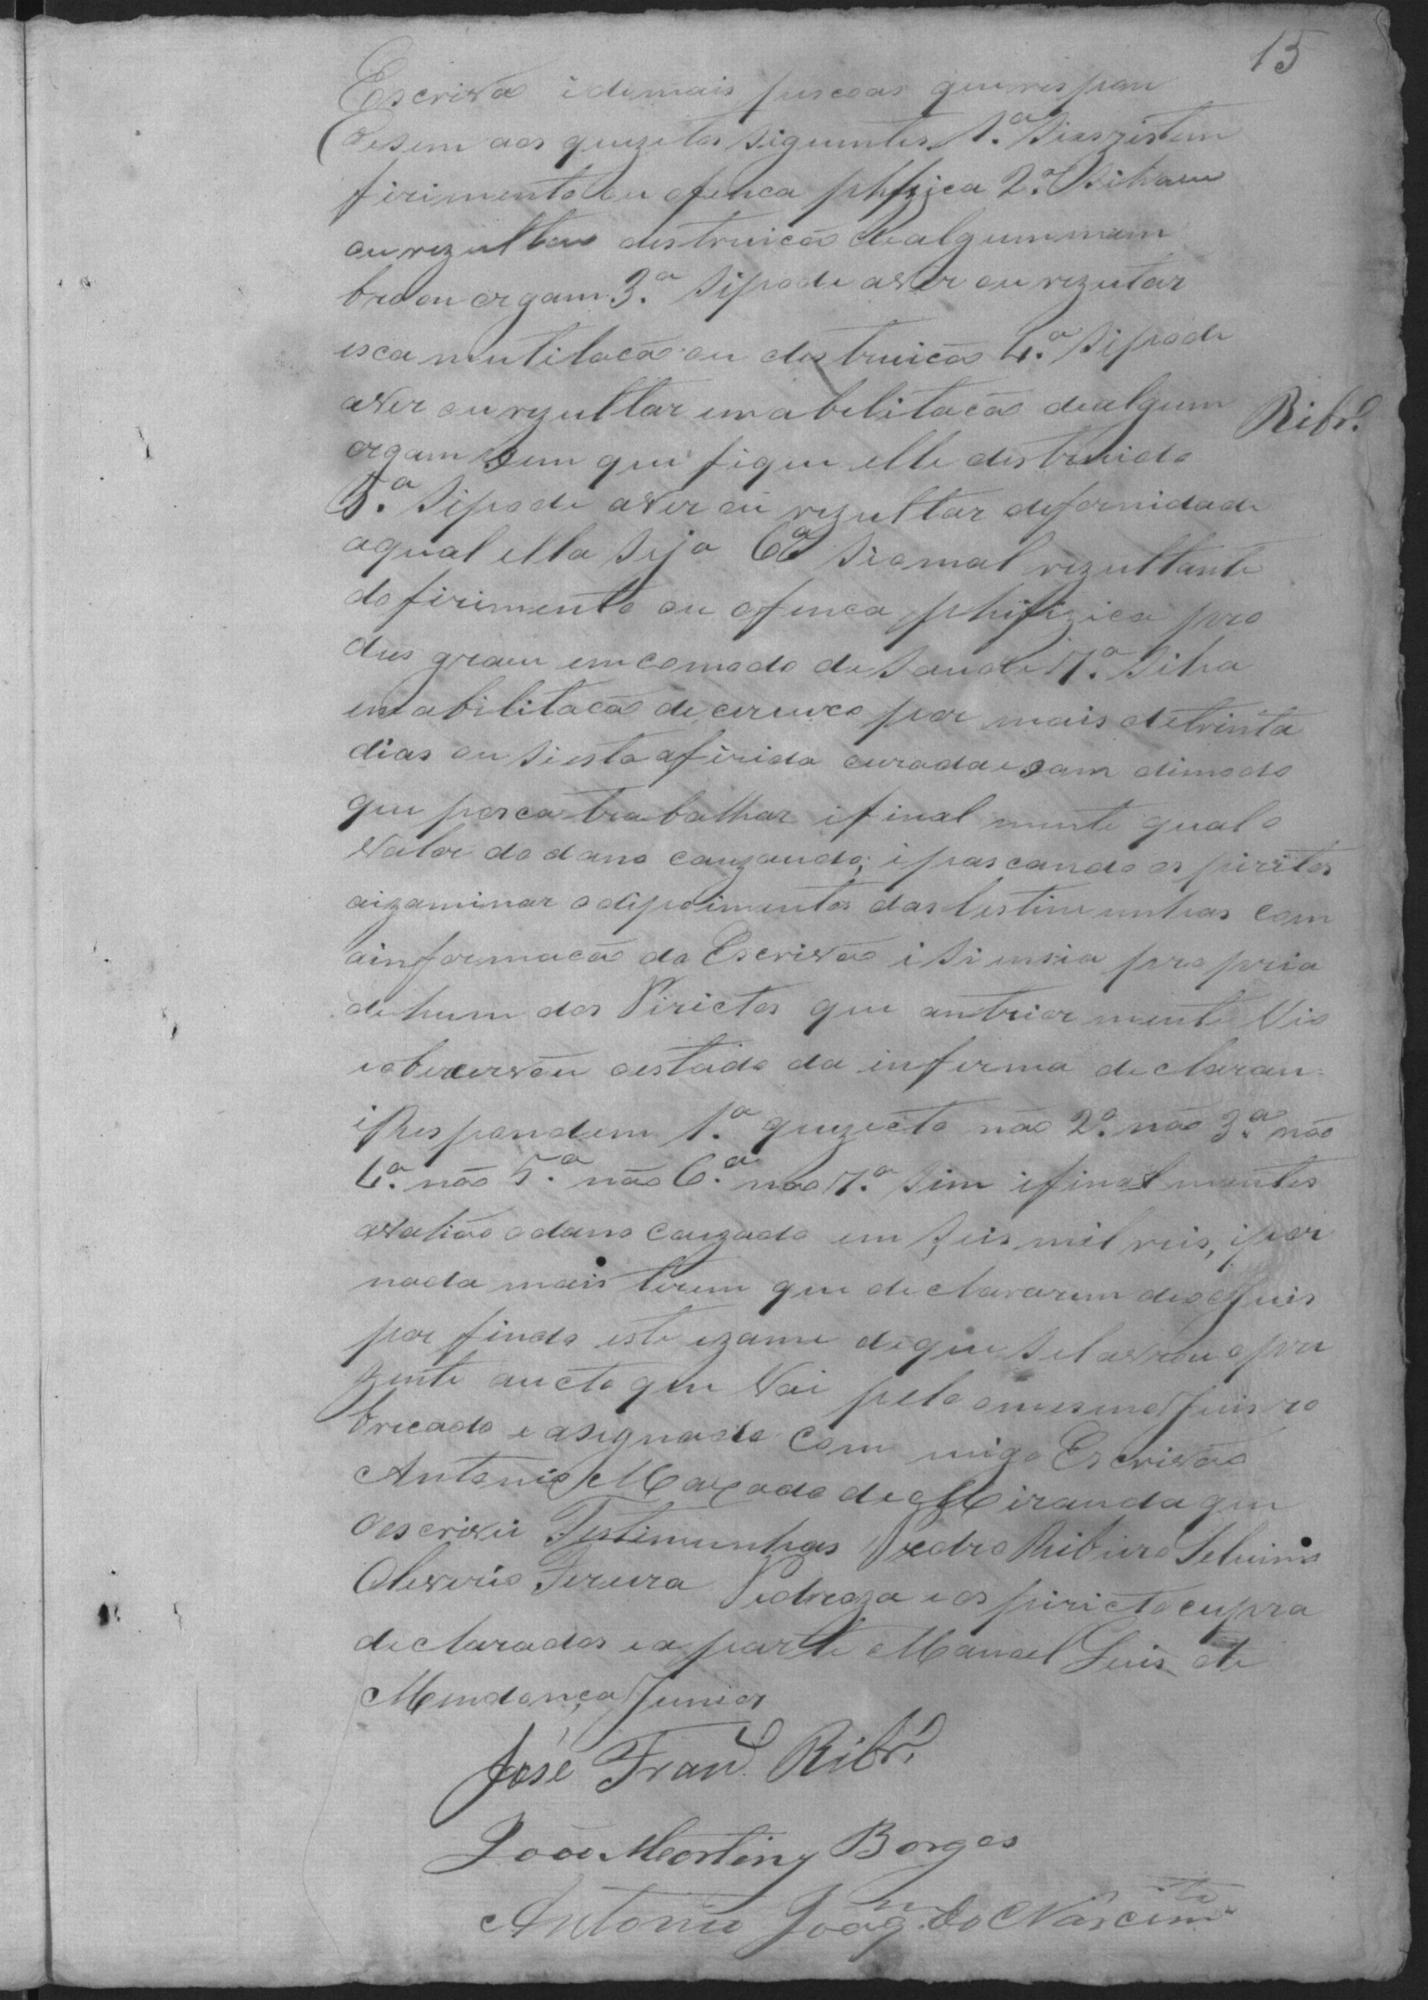 15
Escrivão i demais pescoas que respon
desem aos quezitos siguintes 1.ª Si eszistem
firimento ou ofenca phizica 2.ª Si haveu
ou rezultou destruicão de algum mem
bro ou orgam 3.ª Si pode aver ou rezutar
esca mutilacão ou destruicão 4.ª Si pode
aver ou rezultar em abilitacão de algum
Ribr.º
orgam sem que fique elle destruido
5.ª Si pode aver ou rezultar deformidade
a qual ella seja 6ª Si o mal rezultante
do firimento ou ofenca phizica pro
dus graeu emcomodo de saude 7.ª Si ha
em abilitacão de cervico por mais de trinta
dias ou si esta a firida curada e sam dimodo
que posca trabalhar i final mente qual o
valor do dano cauzando; i pascando os piritos
aizaminar o dipoimentos das testimunhas com
a informacão do Escrivão i siensia propria
de hum dos Pirictos que antrior mente Vio
i obcervou o estado da inferma declaran=
i Respondem 1.ª quezicto não 2.ª não 3.ª não
4.ª não 5.ª não 6.ª não 7.ª Sim i final mentes
avalião o dano cauzado em seis mil reis, i por
nada mais terem que declararem deo o Juis
por findo este ezame de que se lavrou o pre
zente aucto que Vai pelo o mesmo Juis ro
bricado e asignado com migo Escrivão
Antonio Maxado de Miranda que
o escrivi Testimunhas Pedro Ribiiro
Oliverio Pereira Pedroza e os piricto cupra
declarados e a parte Manoel Luis de
Mendonça Junior
José Fran.co Ribr.º
João Martins Borges
Antonio Joaq.m do Nascim.to